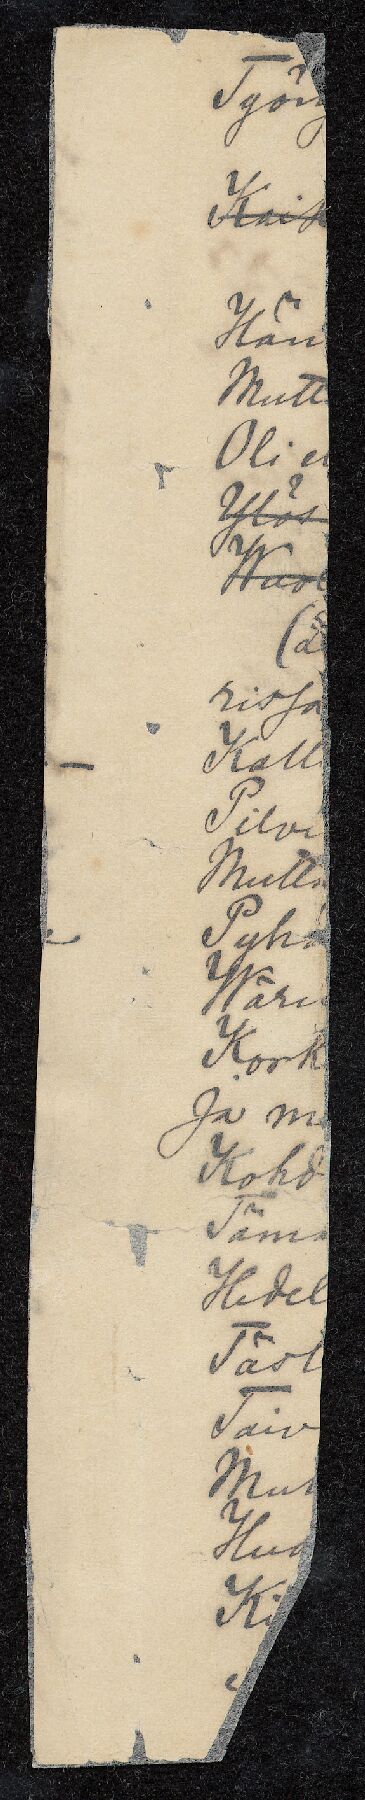 Työn
Kaik
Hän
Mutt
Oli e
Ylös
Wuo
(ä
rissa
Kall
Pilvi
Mutta
Pyhä
Wäri
Kork
Ja m
Kohd
Tämä
Hedel
Täst
Taiv
Mut
Hua
Ki